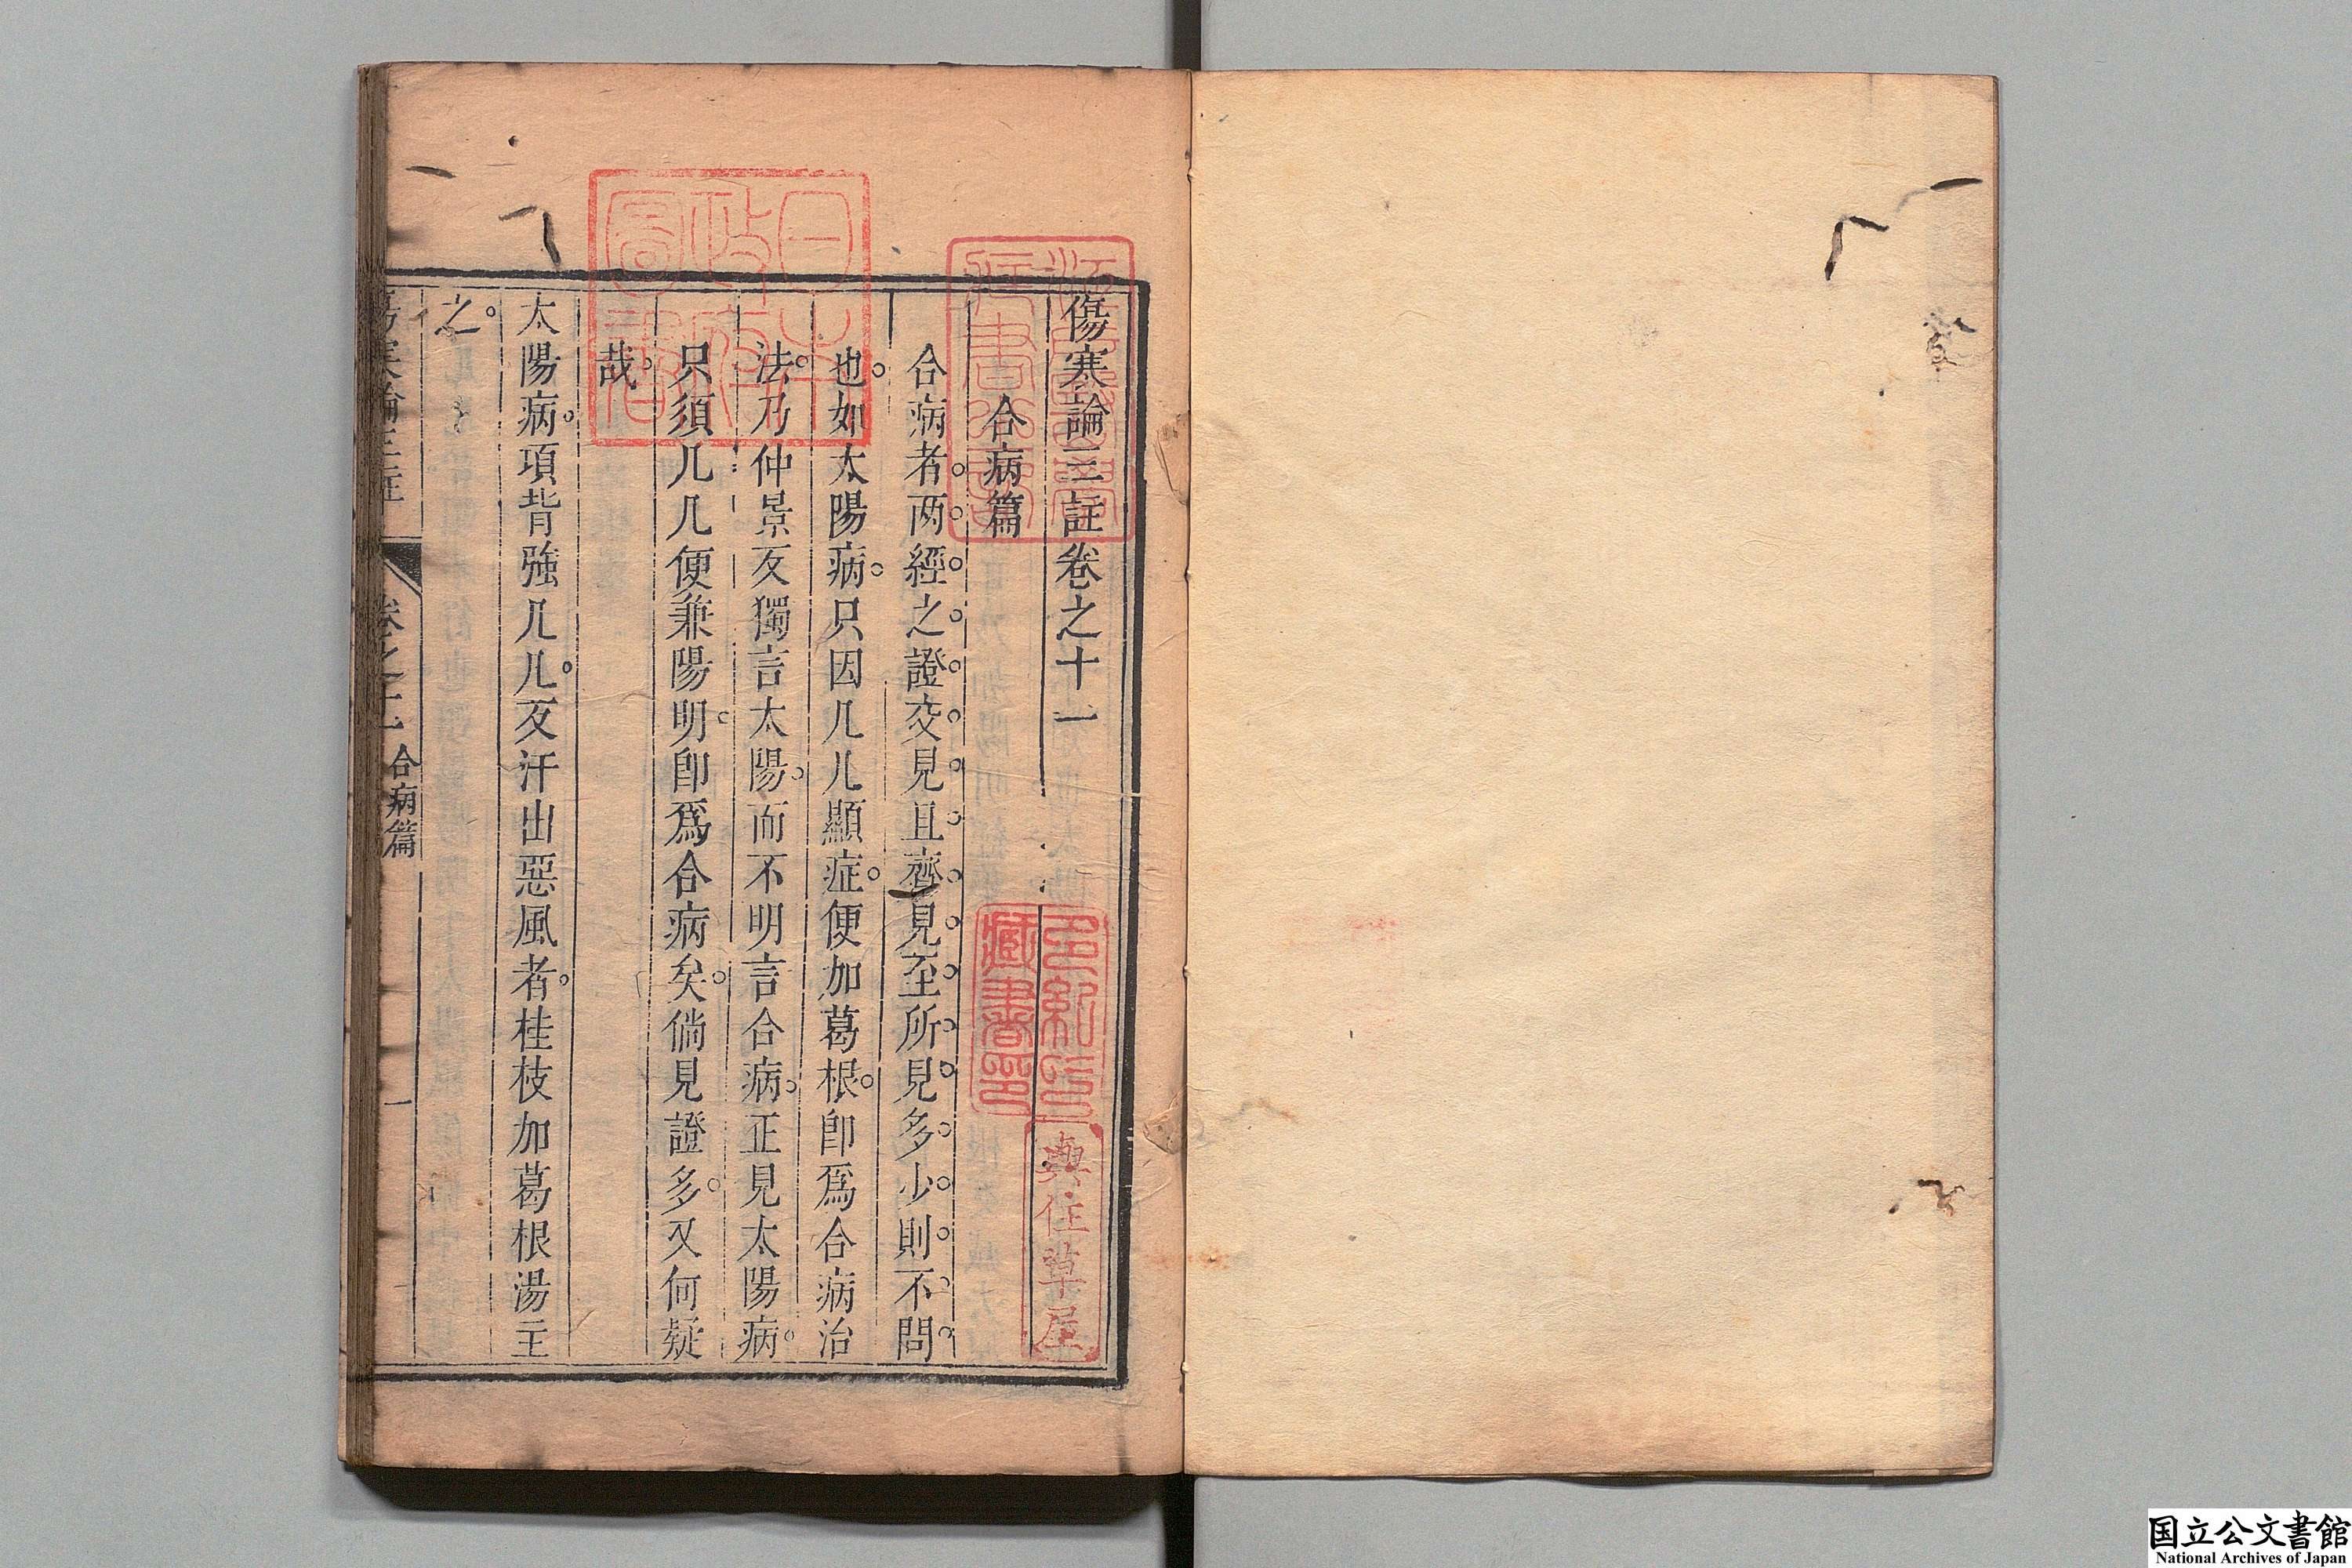 傷寒論三註卷之十一
合病篇
合病者。两經之證交見且齊見至所見多少則不問
也。如太陽病。只因几几顯症。便加葛根。卽爲合病治
法。乃仲景反獨言太陽。而不明言合病。正見太陽病。
只須几几便兼陽明。卽爲合病矣。倘見證多。又何疑
哉。
太陽病。項背強几几。反汗出惡風者。桂枝加葛根湯主
之。
傷寒論三註 卷之十一 合病篇 一
日本政府圖書
藏書印
奥住草屋
国立公文書館
National Archives of Japan